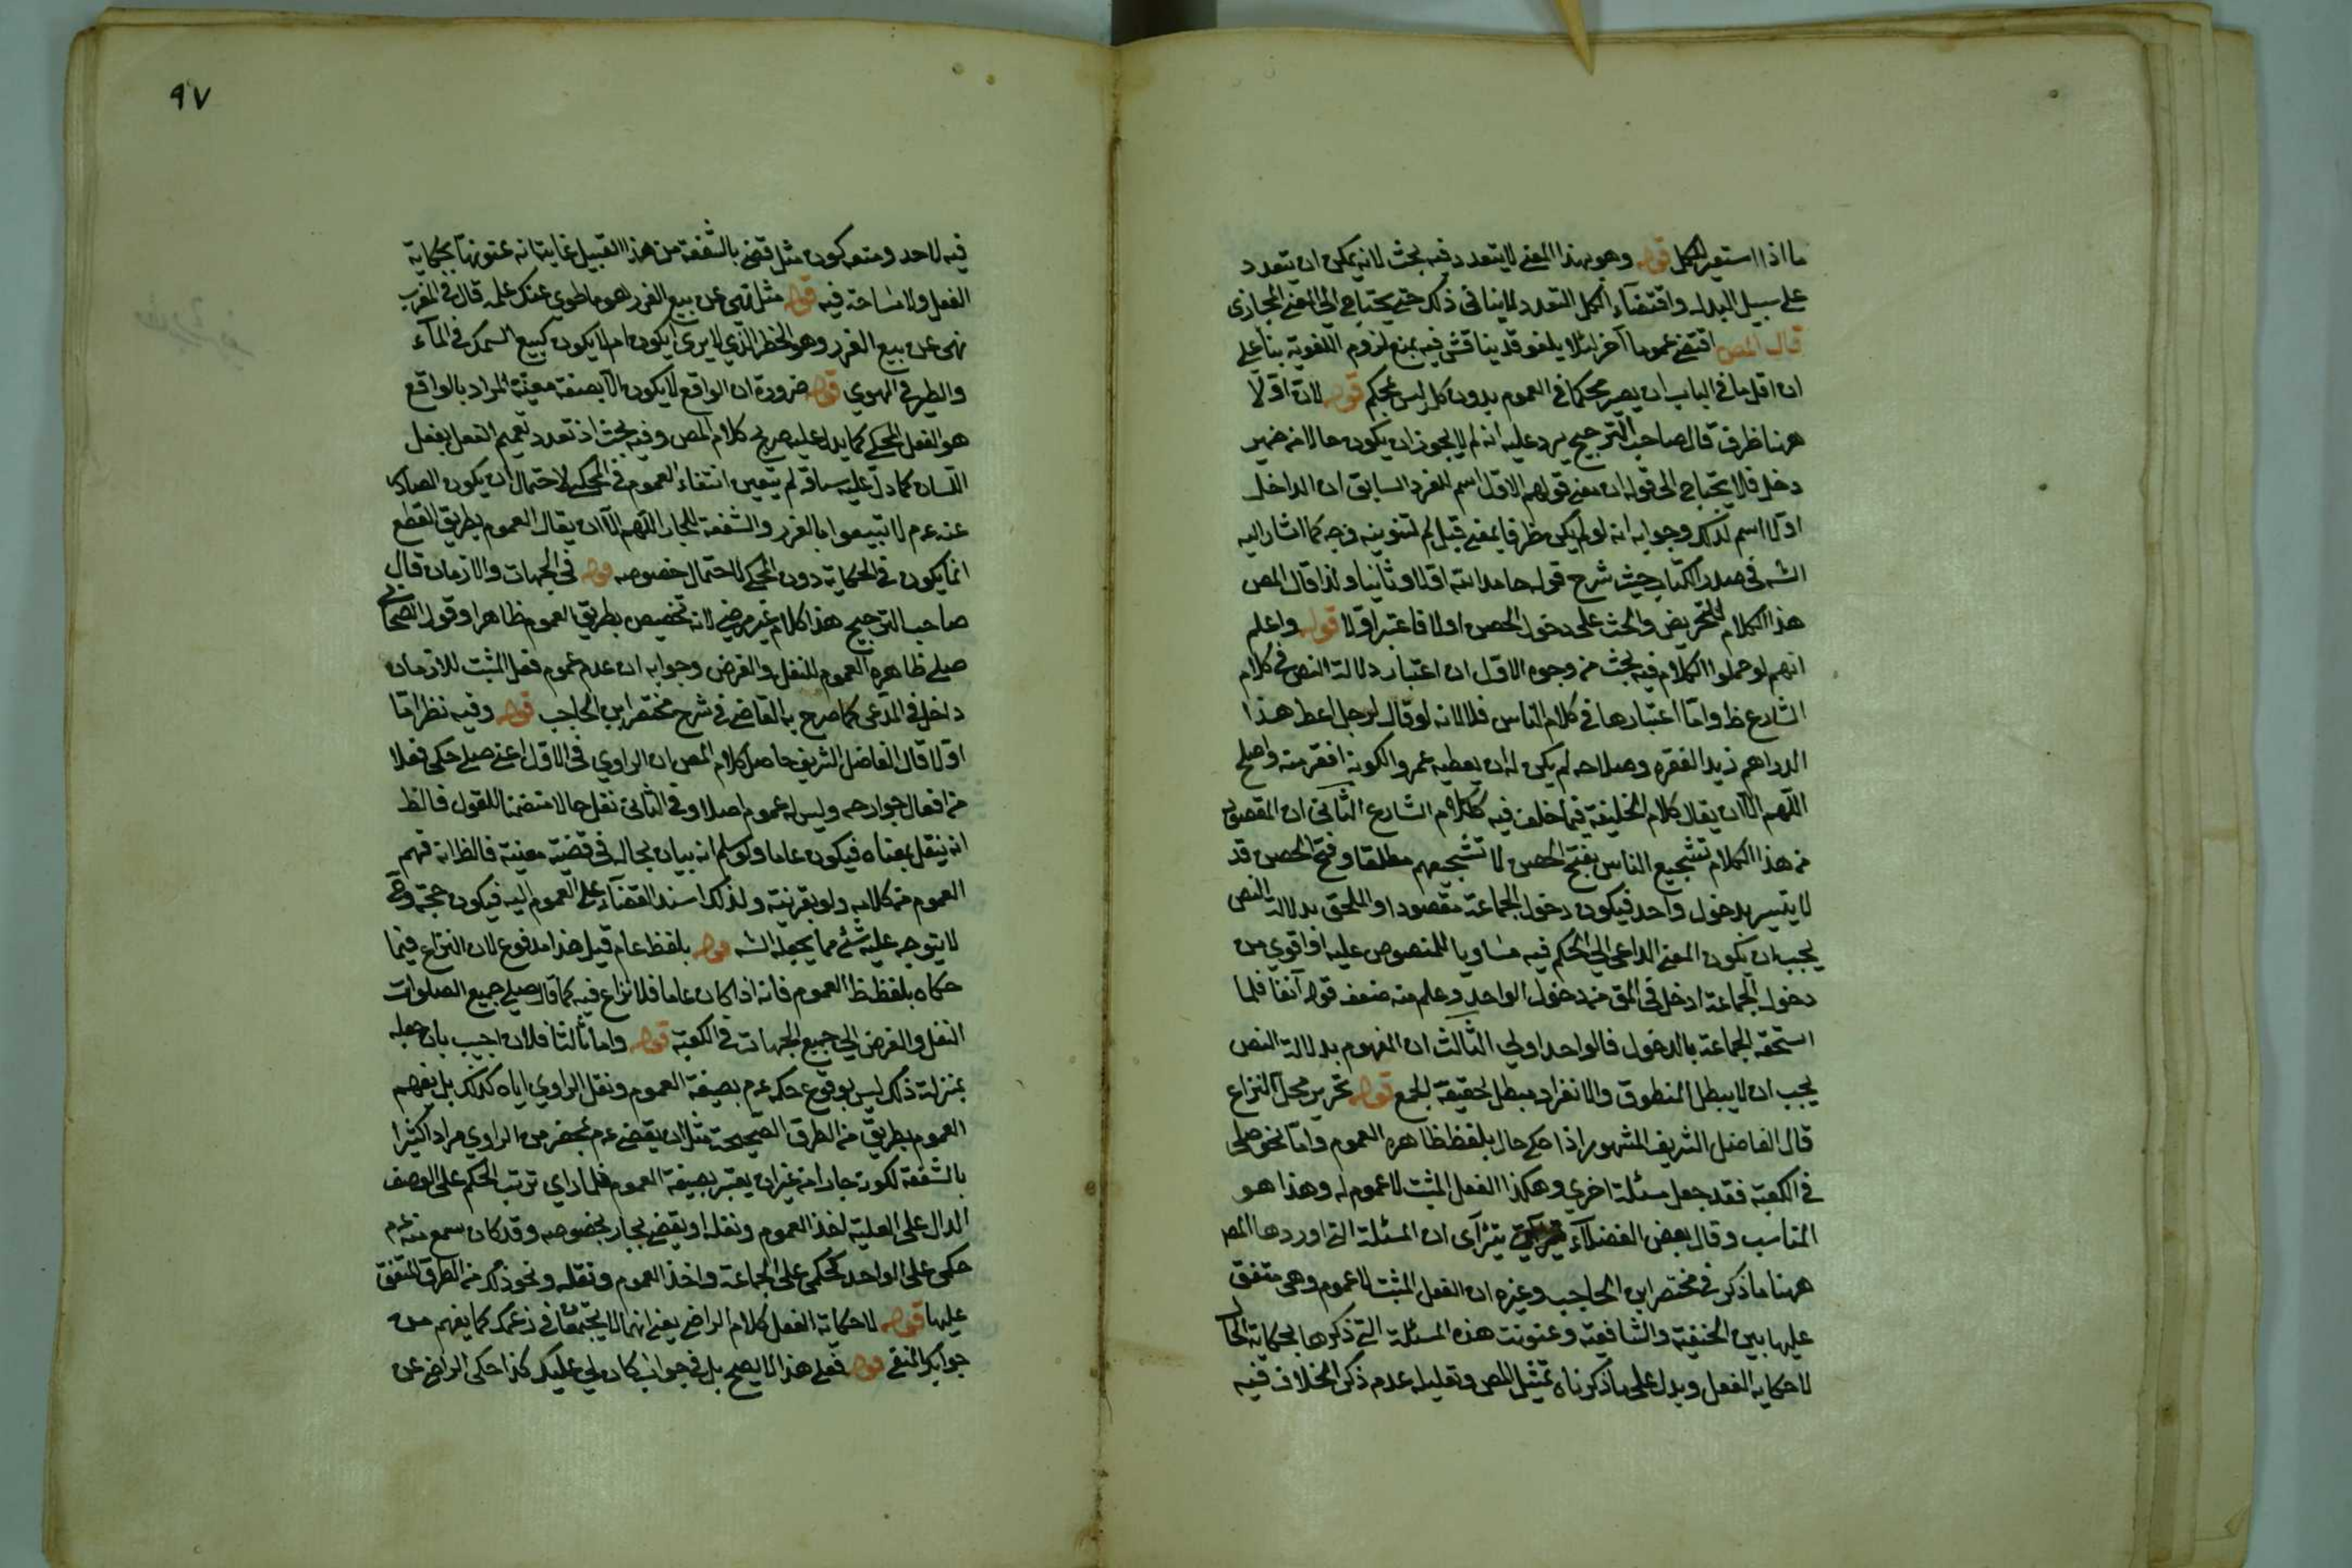 ما اذا استعير للكل قوله وهو بهذا المعنى لا يتعدد فيه بحث لانه يمكن ان يتعدد
على سبيل البدل واقتضاء الكل التعدد لا ينافى ذلك حتى يحتاج الى المعنى المجازى
قال المص اقتضى عموما آخر لئلا يلغو قد يناقش فيه بمنع لزوم اللغوية بناء على
ان اقل ما فى الباب ان يصير محكما فى العموم بدون كل ليس بمحكم قوله لان اوّلا
ههنا ظرف قال صاحب الترجيح يرد عليه انه لم لا يجوز ان يكون حالا من ضمير
دخل فلا يحتاج الى قوله ان معنى قولهم الاوّل اسم للفرد السابق ان الداخل
اوّلا اسم لذلك وجوابه انه لو لم يكن ظرفا بمعنى قبل لم لتنوينه وجه كما اشار اليه
الشه فى صدر الكتاب حيث شرح قوله حامدا لله اوّلا وثانيا ولذا قال المص
هذا الكلام للتحريض والحث على دخول الحصن اولا فاعتبر اوّلا قوله واعلم
انهم لو حملوا الكلام فيه بحث من وجوه الاوّل ان اعتبار دلالة النص فى كلام
الشارع ظ وامّا اعتبارها فى كلام الناس فلا لانه لو قال لرجل اعط هذا
الدراهم زيدا لفقره وصلاحه لم يكن له ان يعطيه عمروا لكونه افقر منه واصلح
اللّهم الّا ان يقال كلام الخليفة فيما خلف فيه ككلام الشارع الثانى ان المقصود
من هذا الكلام تشجيع الناس بفتح الحصن لا تشجيعهم مطلقا وفتح الحصن قد
لا يتيسر بدخول واحد فيكون دخول الجماعة مقصودا والملحق بدلالة النص
يجب ان يكون المعنى الداعى الى الحكم فيه مساويا للمنصوص عليه او اقوى من
دخول الجماعة ادخل فى المق من دخول الواحد وعلم منه ضعف قوله آنفا فلما
استحقه الجماعة بالدخول فالواحد اولى الثالث ان المفهوم بدلالة النص
يجب ان لا يبطل المنطوق والانفراد مبطل لحقيقة الجمع قوله تحرير محل النزاع
قال الفاضل الشريف المشهور اذا حكى حال بلفظ ظاهره العموم وامّا نحو صلى
فى الكعبة فقد جعل مسئلة اخرى وهكذا الفعل المثبت لا عموم له وهذا هو
المناسب وقال بعض الفضلاء يترآى ان المسئلة التى اوردها المص
ههنا ما ذكر فى مختصر ابن الحاجب وغيره ان الفعل المثبت لا عموم وهى متفق
عليها بين الحنفية والشافعية وعنونت هذه المسئلة التى ذكرها بحكاية الحال
لا حكاية الفعل ويدل على ما ذكرناه تمثيل المص وتعليله عدم ذكر الخلاف فيه
٩٧
فيه لاحد ومنعه كون مثل قضى بالشفعة من هذا القبيل غايته انه عنونها بحكاية
الفعل ولا مشاحة فيه قوله مثل نهى عن بيع الغرر هو ما طوى عنك علمه قال فى المغرب
نهى عن بيع الغرر وهو الخطر الذى لا يدرى ايكون ام لا يكون كبيع السمك فى الماء
والطير فى الهوى قوله ضرورة ان الواقع لا يكون الّا بصفة معينة المراد بالواقع
هو الفعل المحكى كما يدل عليه صريح كلام المص وفيه بحث اذ تعدد تعميم الفعل بفعل
اللسان كما دلّ عليه سياقه لم يتعين انتفاء العموم فى المحكى لاحتمال ان يكون الصادر
عنه عم لا تبيعوا بالغرر والشفعة للجار اللهم الّا ان يقال العموم بطريق القطع
انما يكون فى الحكاية دون المحكى لاحتمال خصوصه قوله فى الجهات والازمان قال
صاحب الترجيح هذا كلام غير مرضى لانه تخصيص بطريق العموم ظاهرا وقول الصحابى
صلى ظاهره العموم للنفل والفرض وجوابه ان عدم عموم فعل المثبت للازمان
داخل فى المدعى كما صرح به القاضى فى شرح مختصر ابن الحاجب قوله وفيه نظر امّا
اوّلا قال الفاضل الشريف حاصل كلام المص ان الراوى فى الاوّل اعنى صلى حكى فعلا
من افعال جوارحه وليس له عموم اصلا وفى الثانى نقل حالا متضمنا للقول فالظ
انه ينقل بمعناه فيكون عاما ولو سلم انه بيان لحاله فى قضية معينة فالظ انه فهم
العموم من كلامه ولو بقرينة ولذلك اسند القضاء على العموم اليه فيكون حجة وح
لا يتوجه عليه شئ مما يجعله الشه قوله بلفظ عام قيل هذا مدفوع لان النزاع فيما
حكاه بلفظ ظ العموم فانه اذا كان عاما فلا نزاع فيه كما قال صلى جميع الصلوات
النفل والفرض الى جميع الجهات فى الكعبة قوله واما ثالثا فلان اجيب بان جعله
بمنزلة ذلك ليس بوقوع حكمه عم بصيغة العموم ونقل الراوى اياه كذلك بل بفهم
العموم بطريق من الطرق الصحيحة مثل ان يقضى عم بمحضر من الراوى مرارا كثيرا
بالشفعة لكونه جارا من غير ان يعتبر بصيغة العموم فلما راى ترتب الحكم على الوصف
الدال على العلية اخذ العموم ونقله او يقضى لجار بخصوصه وقد كان سمع منه عم
حكمى على الواحد كحكمى على الجماعة واخذ العموم ونقله ونحو ذلك من الطرق المتفق
عليها قوله لا حكاية الفعل كلام الراضى يعنى انهما لا يجتمعان فى زعمك كما يفهم من
قوله فعلى هذا لا يصح بل فى جواب كذا حكى الراضى عن